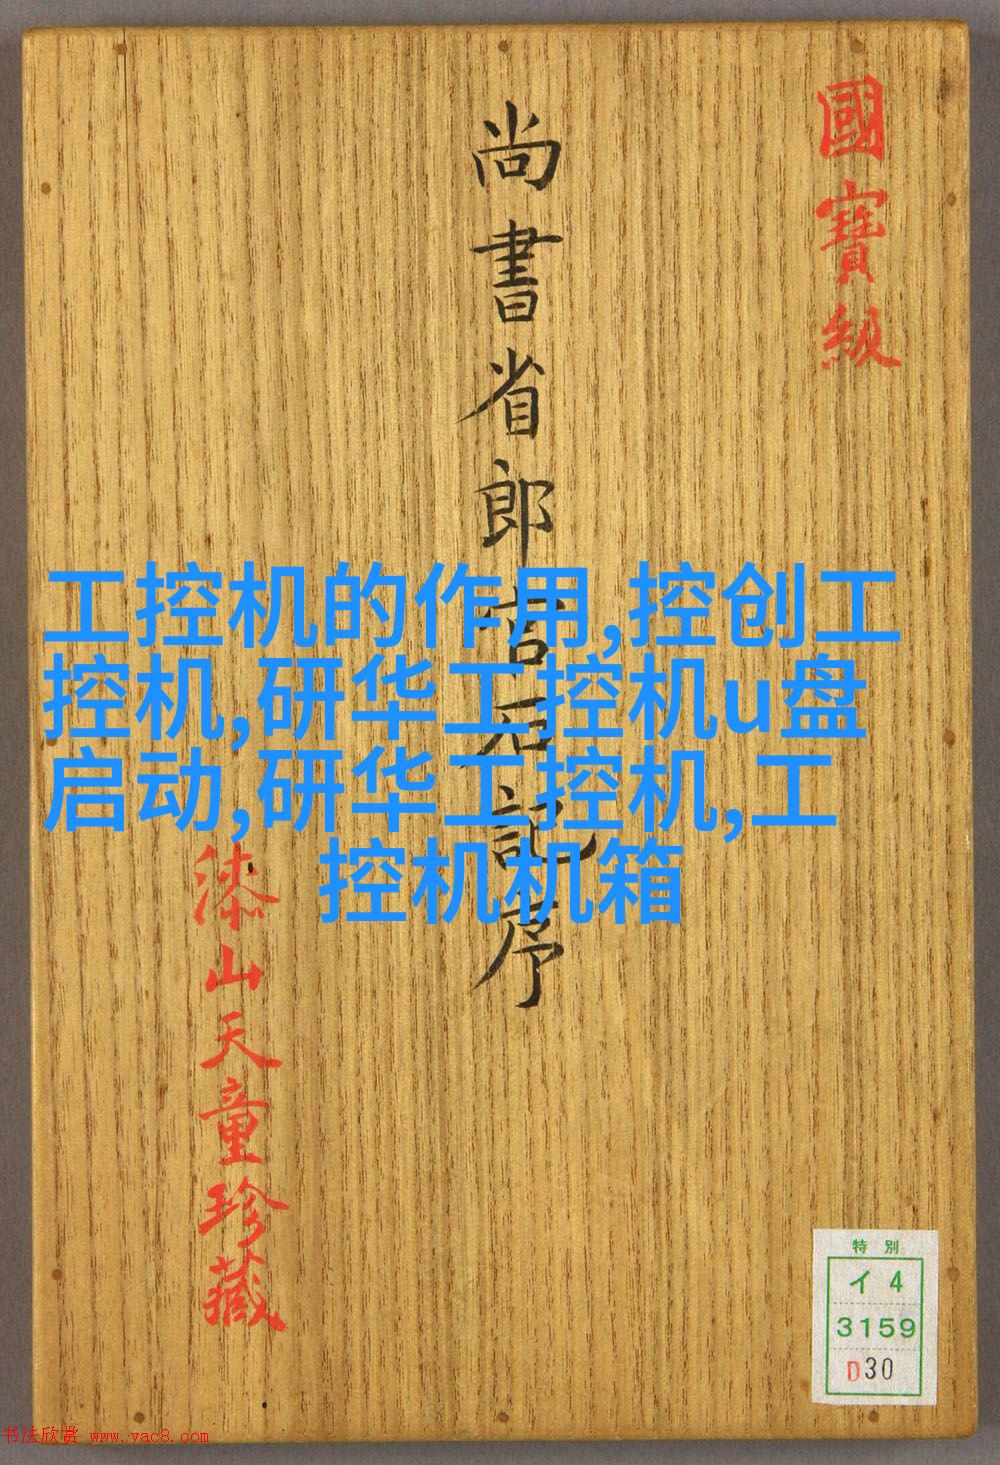 國寶級
尚書省郎官石記序
漆山天童珍藏
工控机的作用,控创工
控机,研华工控机u盘
启动,研华工控机,工
控机机箱
特別
イ4
3159
D30
书法欣赏 www.yac8.com